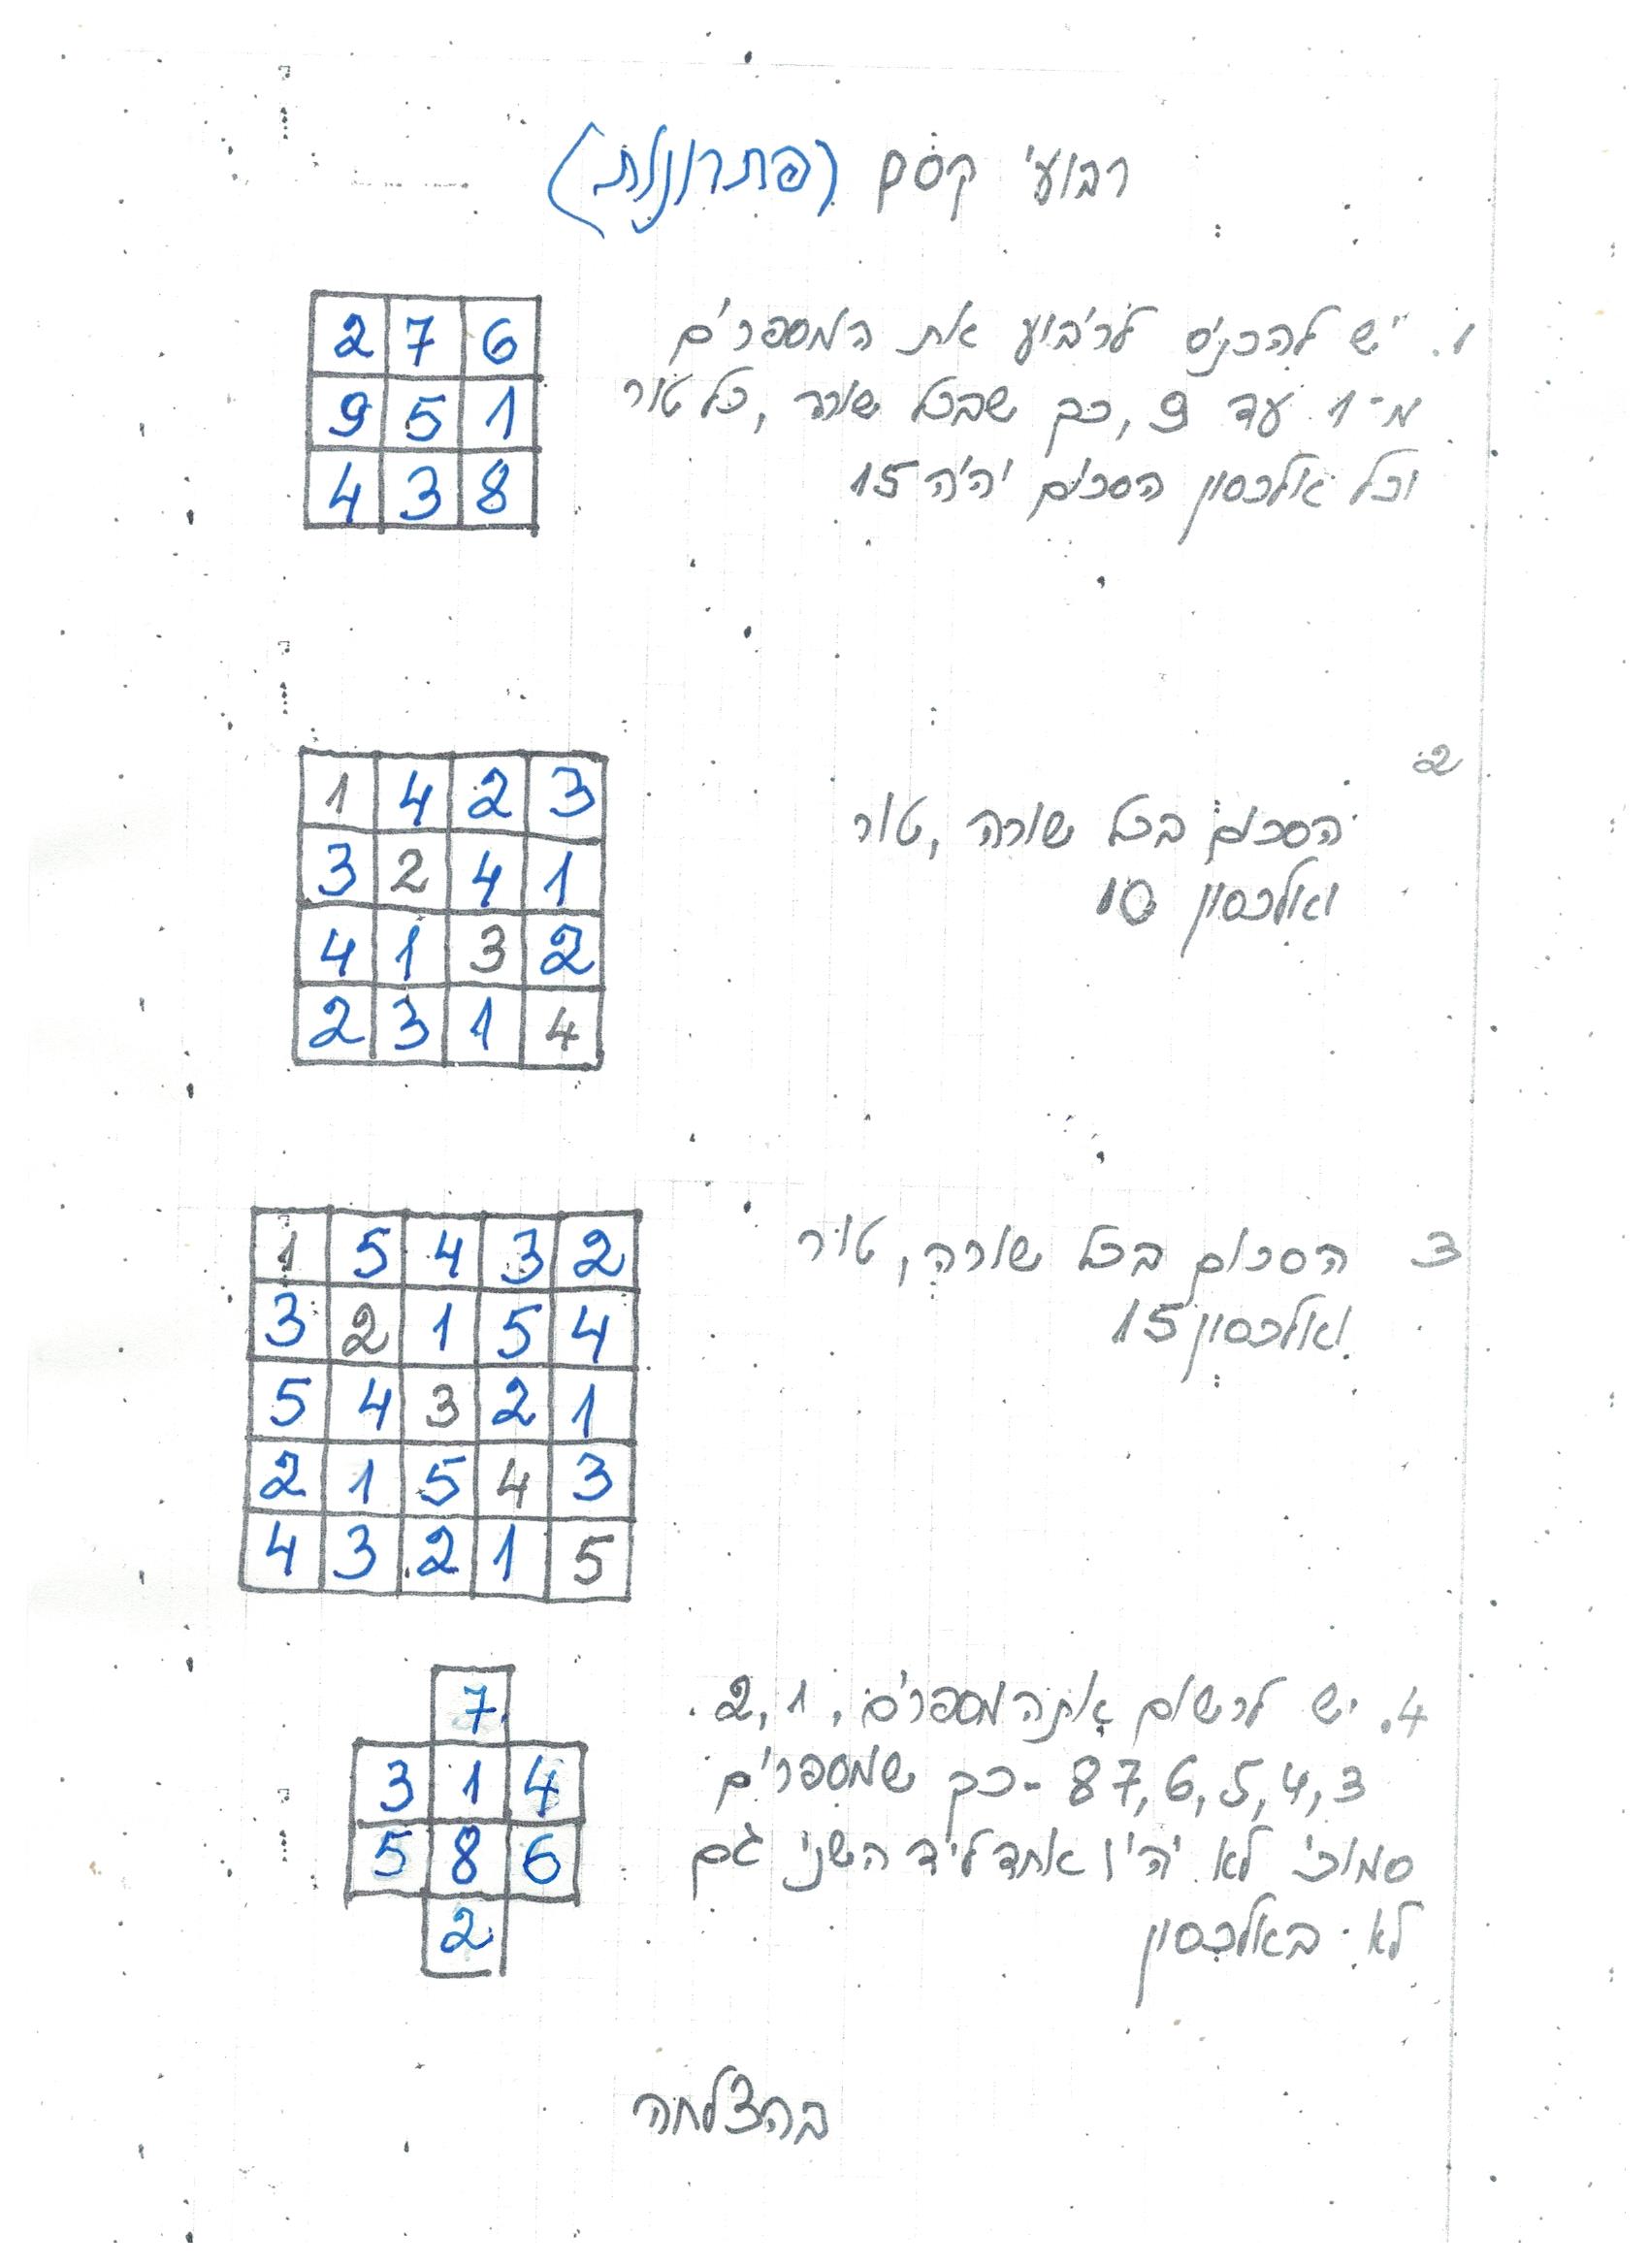 רבועי קסם (פתרונות)
1. יש להכניס לריבוע את המספרים
מ-1 עד 9, כך שבכל שורה, כל טור
וכל אלכסון הסכום יהיה 15
2 7 6
9 5 1
4 3 8
2
הסכום בכל שורה, טור
ואלכסון 10
1 4 2 3
3 2 4 1
4 1 3 2
2 3 1 4
3 הסכום בכל שורה, טור
ואלכסון 15
1 5 4 3 2
3 2 1 5 4
5 4 3 2 1
2 1 5 4 3
4 3 2 1 5
4. יש לרשום את המספרים, 1, 2.
3, 4, 5, 6, 7 8 - כך שמספרים
סמוכי לא יהיו אחד ליד השני גם
לא באלכסון
7
3 1 4
5 8 6
2
בהצלחה